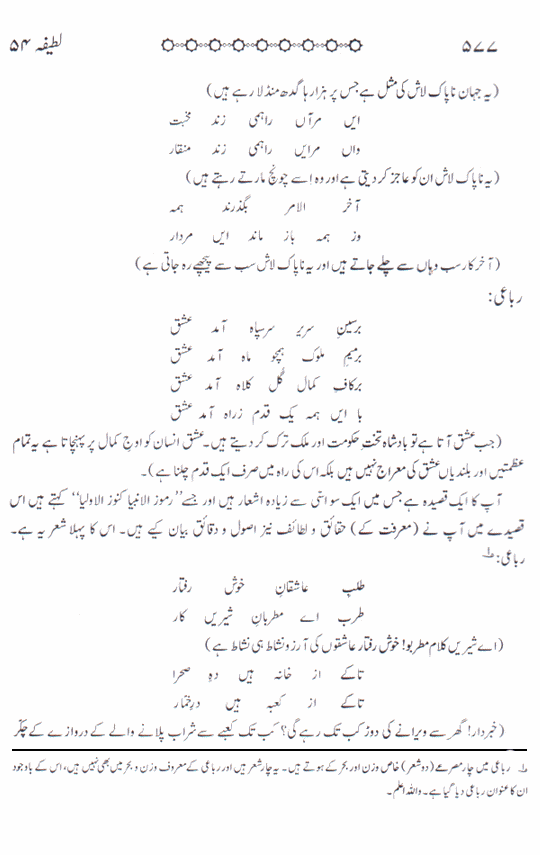 ۵۷۷ لطیفہ ۵۴
(یہ جہان ناپاک لاش کی مثل ہے جس پر ہزارہا گدھ منڈلا رہے ہیں)
ایں مرآں راہمی زند مخبت
واں مرایں راہمی زند منقار
(یہ ناپاک لاش ان کو عاجز کر دیتی ہے اور وہ اسے چونچ مارتے رہتے ہیں)
آخر الامر بگذرند ہمہ
وز ہمہ باز ماند ایں مردار
(آخر کار سب وہاں سے چلے جاتے ہیں اور یہ ناپاک لاش سب سے پیچھے رہ جاتی ہے)
رباعی:
برسینِ سریر سرسپاہ آمد عشق
برمیمِ ملوک ہمچو ماہ آمد عشق
برکافِ کمال گُل کلاہ آمد عشق
با ایں ہمہ یک قدم زراہ آمد عشق
(جب عشق آتا ہے تو بادشاہ تختِ حکومت اور ملک ترک کر دیتے ہیں۔ عشق انسان کو اوجِ کمال پر پہنچاتا ہے یہ تمام
عظمتیں اور بلندیاں عشق کی معراج نہیں ہیں بلکہ اس کی راہ میں صرف ایک قدم چلنا ہے)۔
آپ کا ایک قصیدہ ہے جس میں ایک سو اسّی سے زیادہ اشعار ہیں اور جسے ’’رموز الانبیا کنوز الاولیا‘‘ کہتے ہیں اس
قصیدے میں آپ نے (معرفت کے) حقائق و لطائف نیز اصول و دقائق بیان کیے ہیں۔ اس کا پہلا شعر یہ ہے۔
رباعی: ؎۱
طلبِ عاشقانِ خوش رفتار
طرب اے مطربانِ شیریں کار
(اے شیریں کلام مطربو! خوش رفتار عاشقوں کی آرزو نشاط ہی نشاط ہے)
تاکے از خانہ ہیں دہِ صحرا
تاکے از کعبہ ہیں درِخمّار
(خبردار! گھر سے ویرانے کی دوڑ کب تک رہے گی؟ کب تک کعبے سے شراب پلانے والے کے دروازے کے چکّر
؎۱ رباعی میں چار مصرعے (دو شعر) خاص وزن اور بحر کے ہوتے ہیں۔ یہ چار شعر ہیں اور رباعی کے معروف وزن و بحر میں بھی نہیں ہیں، اس کے باوجود
ان کا عنوان رباعی دیا گیا ہے۔ واللہ اعلم۔